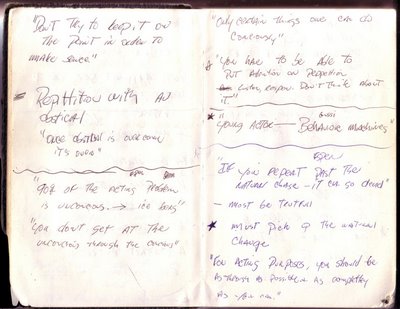 "Don't Try to keep it on
the point in order to
make sence"
Repitition with an
obstical
"once obstical is overcome
it's over"
"90% of the Acting Problem
is unconcous → ice berg"
"you don't get at the
unconcous through the concous"
"only certain things one can do
concously"
"you have to be able to
put attention on repetition
listen, respon. Don't think about
it"
"young Actor — Behavior machines"
"If you repeat past the
natural change - it can go dead"
- must be truthful
must pick up the natural
change
"For Acting Purposes, you should be
as possible as completley
as you can."